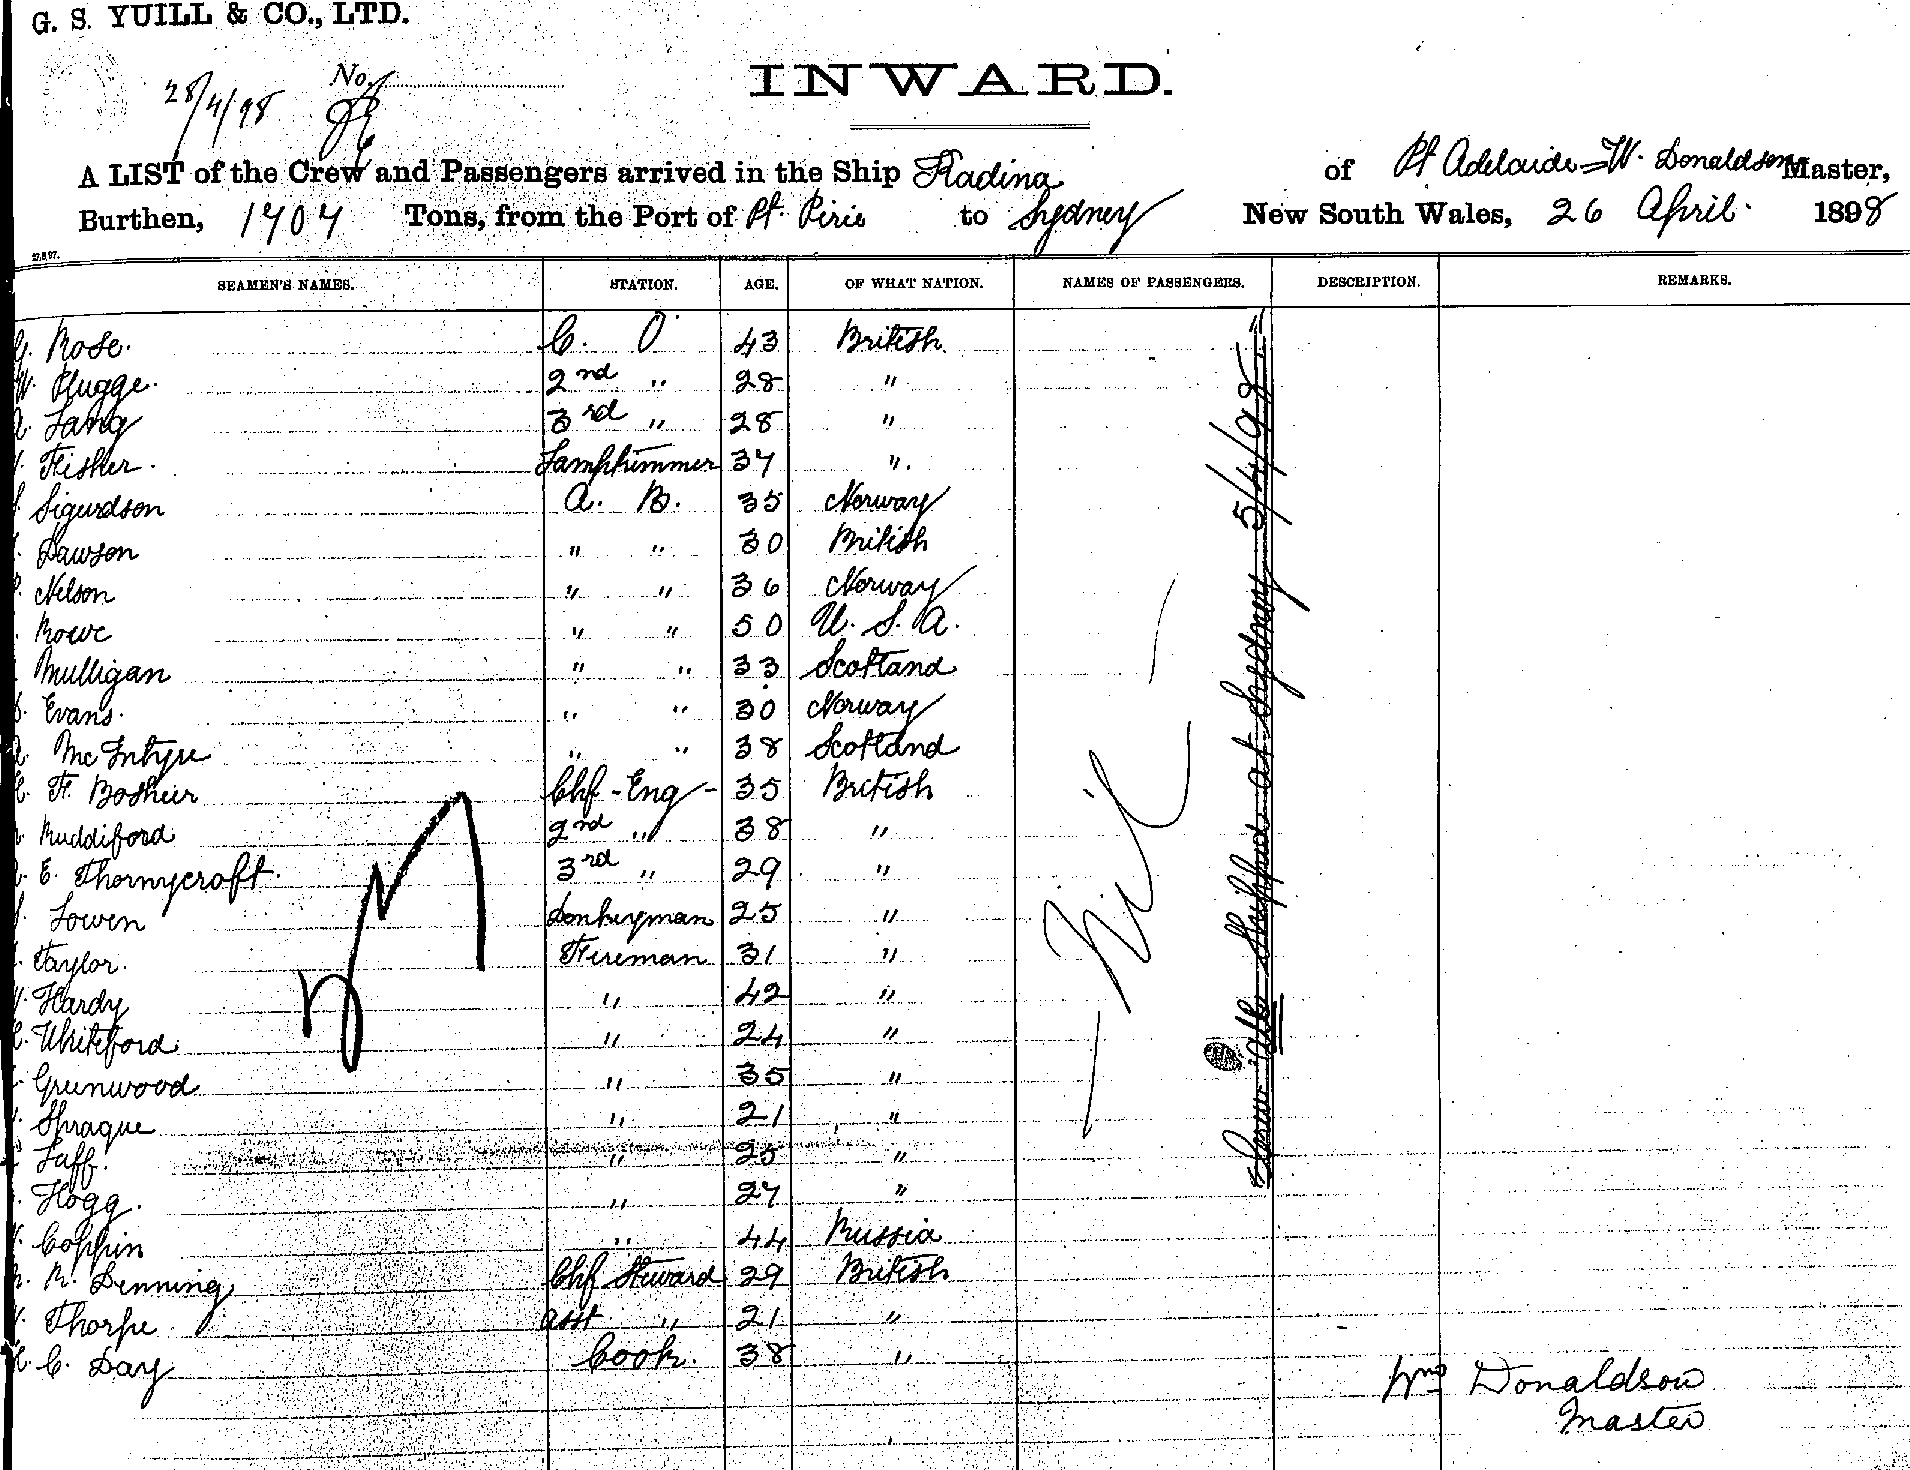 G. S. YUILL & CO., LTD.
28/4/98 No.
INWARD.
A LIST of the Crew and Passengers arrived in the Ship Kadina of Pt Adelaide = W. Donaldson Master,
Burthen, 1707 Tons, from the Port of Pt. Pirie to Sydney New South Wales, 26 April. 1898
27.8.97.
SEAMEN'S NAMES. STATION. AGE. OF WHAT NATION. NAMES OF PASSENGERS. DESCRIPTION. REMARKS.
G. Rose. C. O 43 British
W. Plugge. 2nd " 28 "
Lang 3rd " 28 "
Fisher. Lamptrimmer 37 "
Sigurdson A. B. 35 Norway
Dawson " " 30 British
Nelson " " 36 Norway
Rowe " " 50 U. S. A.
Mulligan " " 33 Scotland
Evans. " " 30 Norway
McIntyre " " 38 Scotland
F. Bosheir Chf - Eng - 35 British
Ruddiford 2nd " 38 "
E. Thornycroft. 3rd " 29 "
Lowen Donkeyman 25 "
Taylor. Fireman 31 "
Hardy " 42 "
Whiteford " 24 "
Greenwood " 35 "
Sprague " 21 "
Taff. " 25 "
Hogg. " 27 "
Coppin " 44 Russia
R. Denning Chf Steward 29 British
Thorpe Asst " 21 "
C. Day Cook. 38 "
- Nil -
Crew all Shipped at Sydney 5/4/98
Wm Donaldson
Master